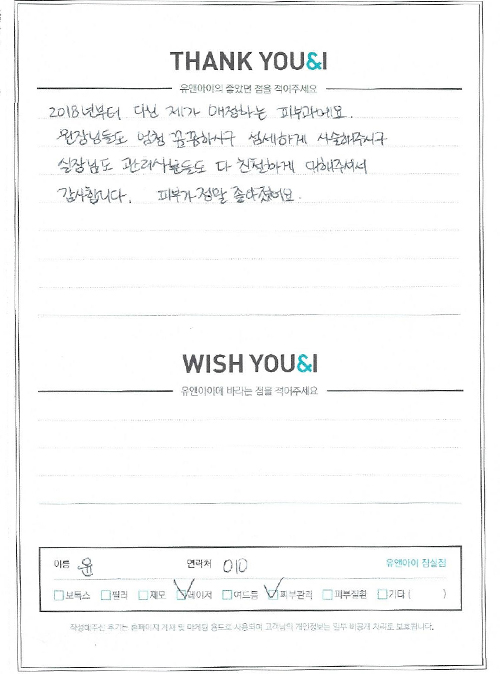 THANK YOU&I
유앤아이의 좋았던 점을 적어주세요
2018년부터 다닌 제가 애정하는 피부과에요.
원장님들도 엄청 꼼꼼하시구 섬세하게 시술해주시구
실장님도 관리사분들도 다 친절하게 대해주셔서
감사합니다. 피부가 정말 좋아졌어요.
WISH YOU&I
유앤아이에 바라는 점을 적어주세요
이름 윤 연락처 010 유앤아이 잠실점
보톡스 필러 제모 레이저 여드름 피부관리 피부질환 기타 ( )
작성해주신 후기는 홈페이지 게재 및 마케팅 용도로 사용되며 고객님의 개인정보는 일부 비공개 처리로 보호됩니다.